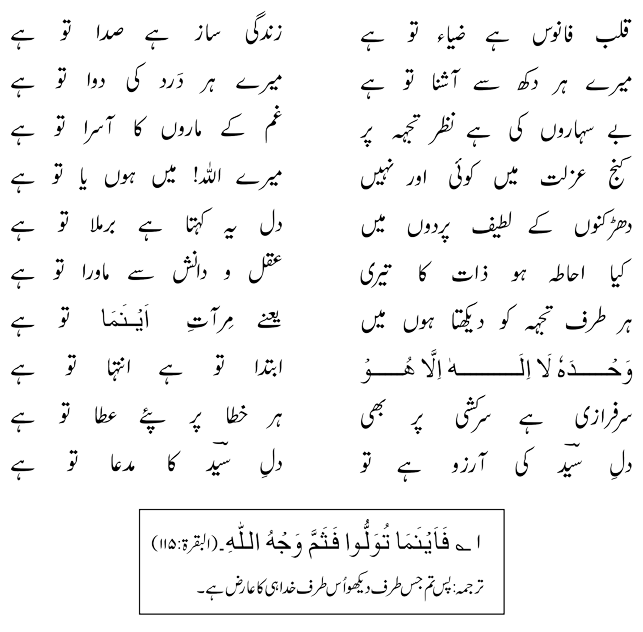 قلب فانوس ہے ضیاء تو ہے زندگی ساز ہے صدا تو ہے
میرے ہر دکھ سے آشنا تو ہے میرے ہر دَرد کی دوا تو ہے
بے سہاروں کی ہے نظر تجہہ پر غم کے ماروں کا آسرا تو ہے
کنج عزلت میں کوئی اور نہیں میرے اللہ! میں ہوں یا تو ہے
دھڑکنوں کے لطیف پردوں میں دل یہ کہتا ہے برملا تو ہے
کیا احاطہ ہو ذات کا تیری عقل و دانش سے ماورا تو ہے
ہر طرف تجہہ کو دیکھتا ہوں میں یعنے مِرآتِ اَیْنَمَا تو ہے
وَحْدَہٗ لَا اِلٰہَ اِلَّا ھُوْ ابتدا تو ہے انتہا تو ہے
سرفرازی ہے سرکشی پر بھی ہر خطا پر پئے عطا تو ہے
دلِ سیّدؔ کی آرزو ہے تو دلِ سیّدؔ کا مدعا تو ہے
۱؎ فَاَیْنَمَا تُوَلُّوا فَثَمَّ وَجْهُ اللّٰهِ۔(البقرۃ:۱۱۵)
ترجمہ: پس تم جس طرف دیکھو اُس طرف خدا ہی کا عارض ہے۔